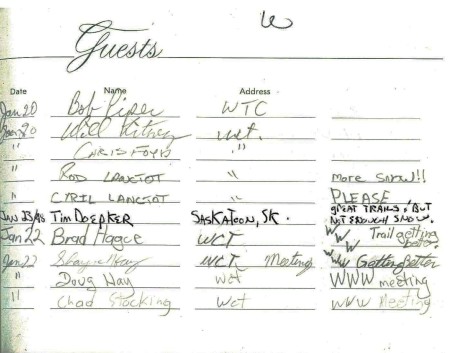 Guests
Date Name Address
Jan 20 Bob Piper WTC
Jan 20 Will wct.
" CHRIS " 
" ROD LANCTOT " more Snow!!
" CYRIL LANCTOT PLEASE
JAN 23/96 TIM DOEPKER SASKATOON, SK. GREAT TRAILS, BUT NOT ENOUGH SNOW.
Jan 22 Brad WCT WW Trail getting
Jan 22 WCT Meeting WW Getting Better
" Doug Hay wct WWW meeting
" Chad Stocking wct WWW Meeting